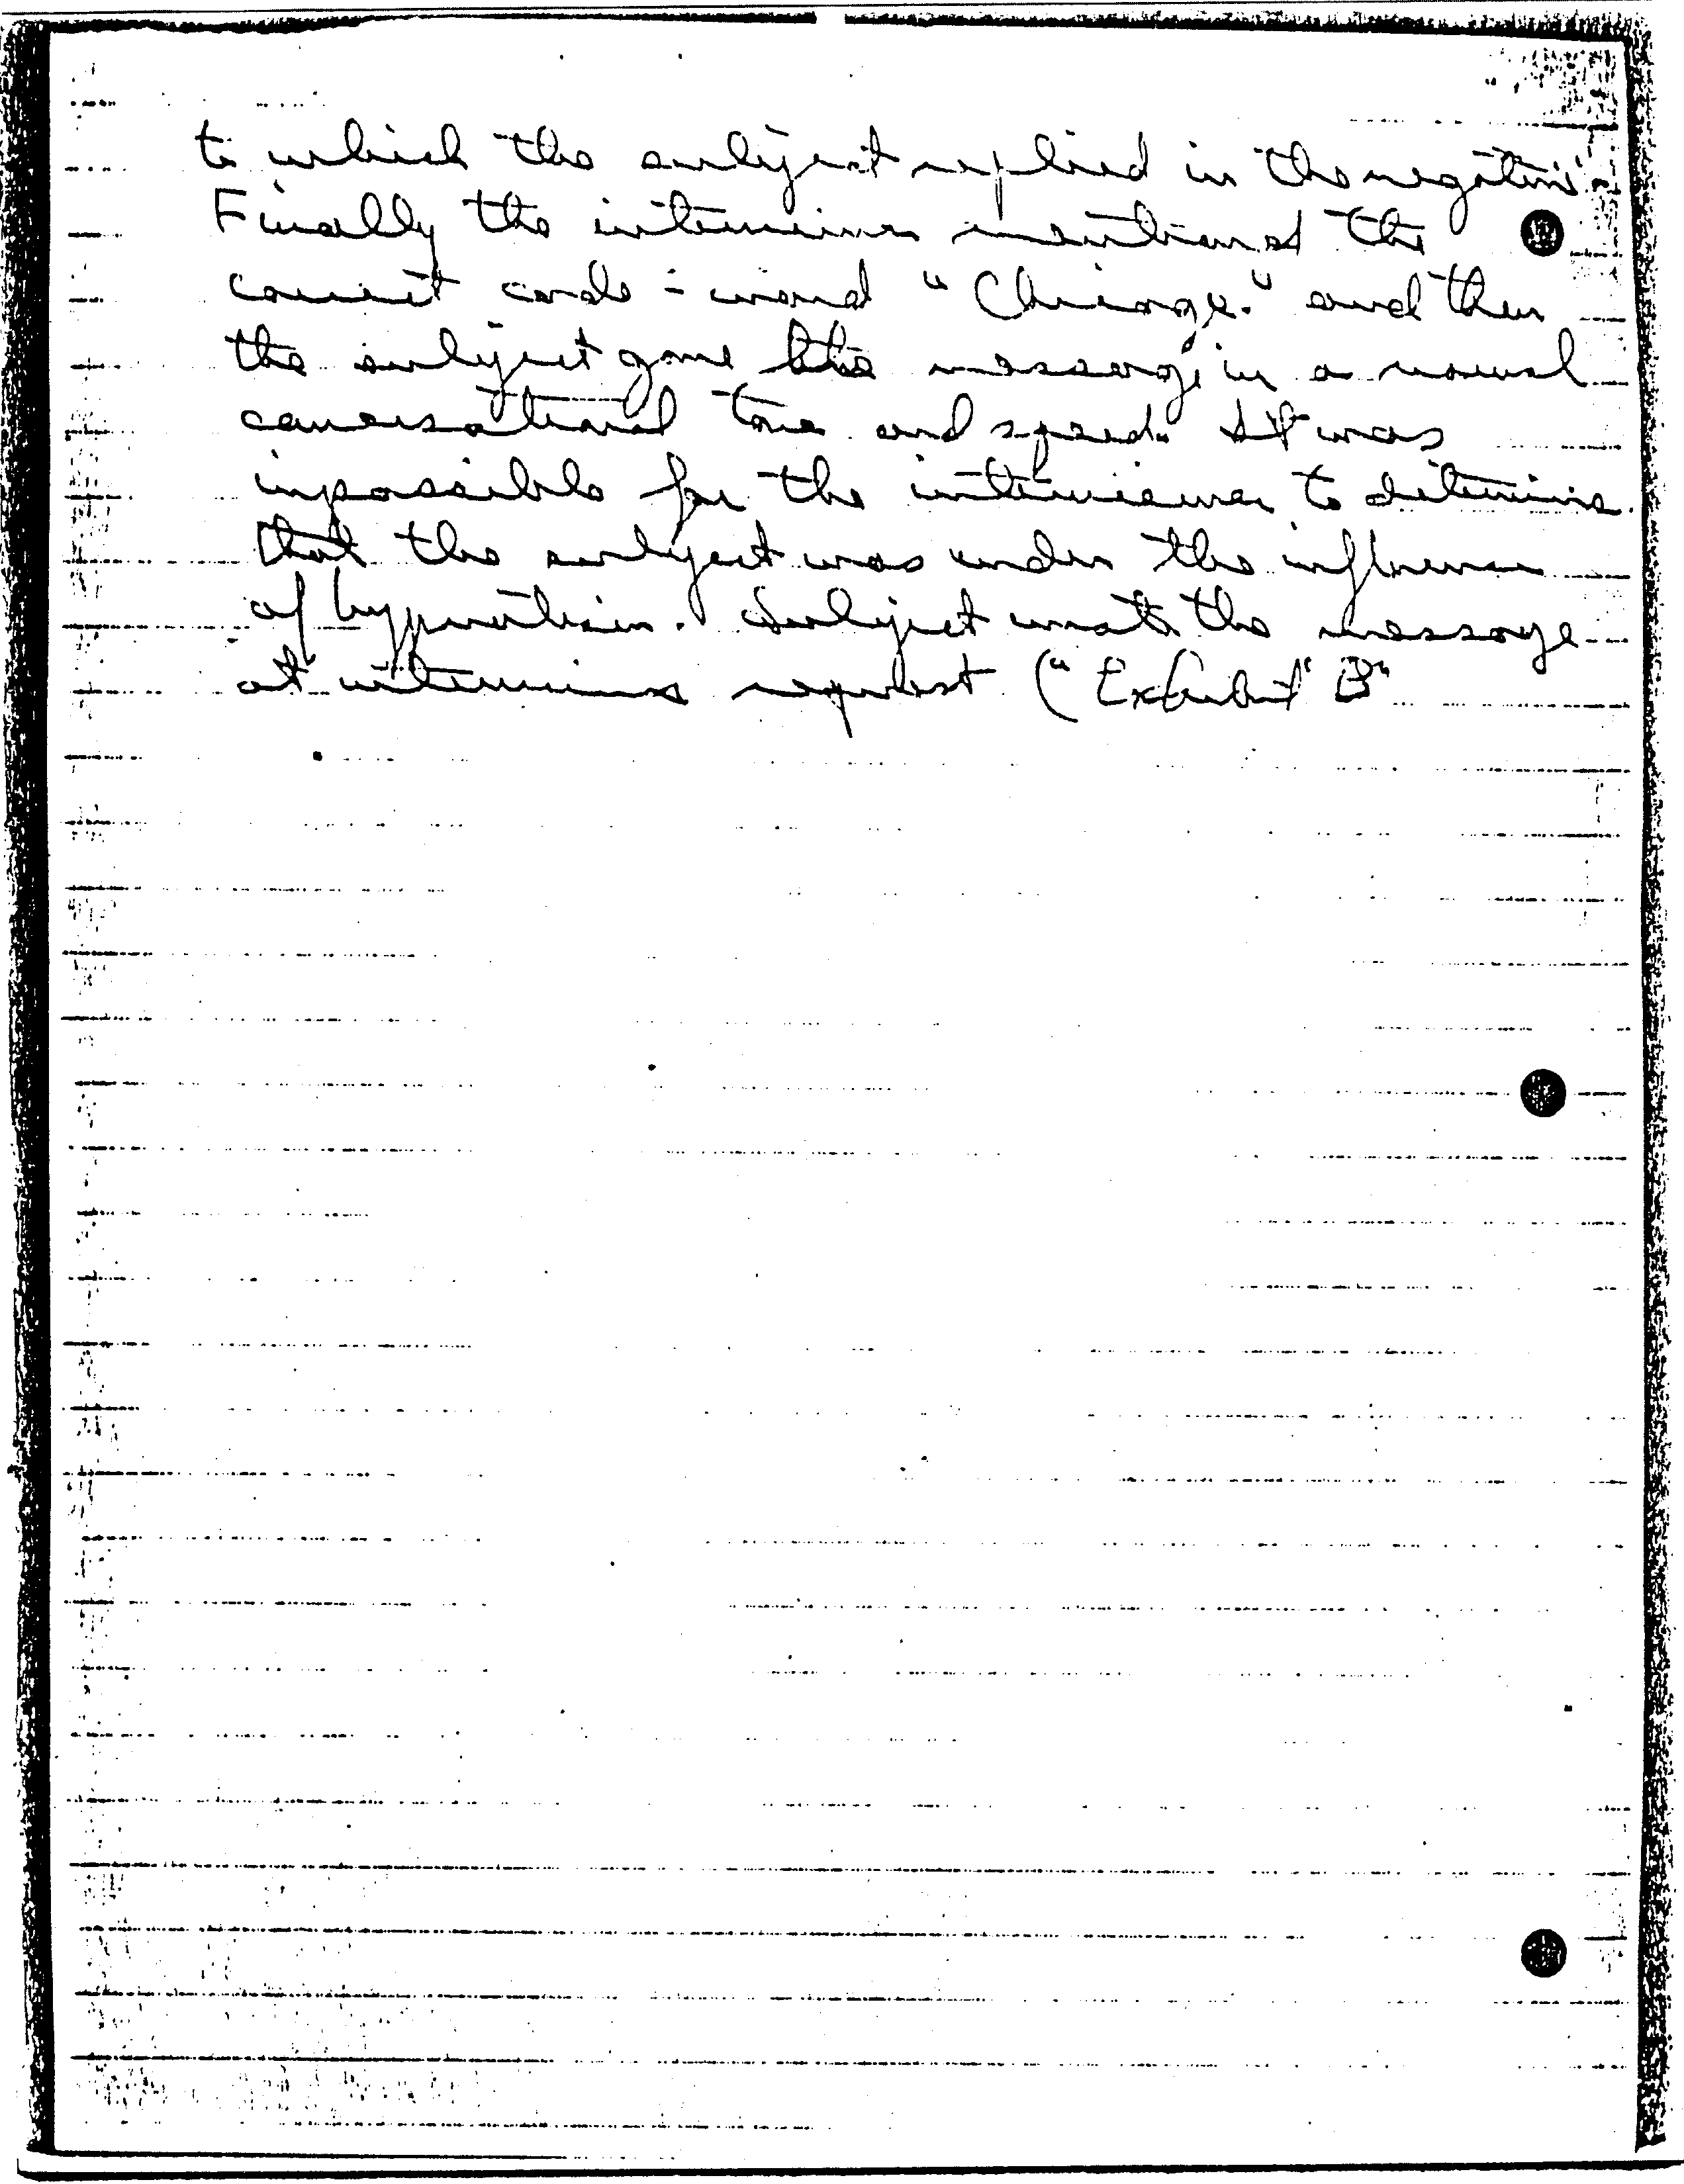 to which the subject replied in the negative.
Finally the interviewer mentioned the
correct code-word "Chicago." and then
the subject gave the message in a normal
conversational tone and speed. It was
impossible for the interviewer to determine
that the subject was under the influence
of hypnotism. Subject wrote the message
at interviewers request ("Exhibit "B"